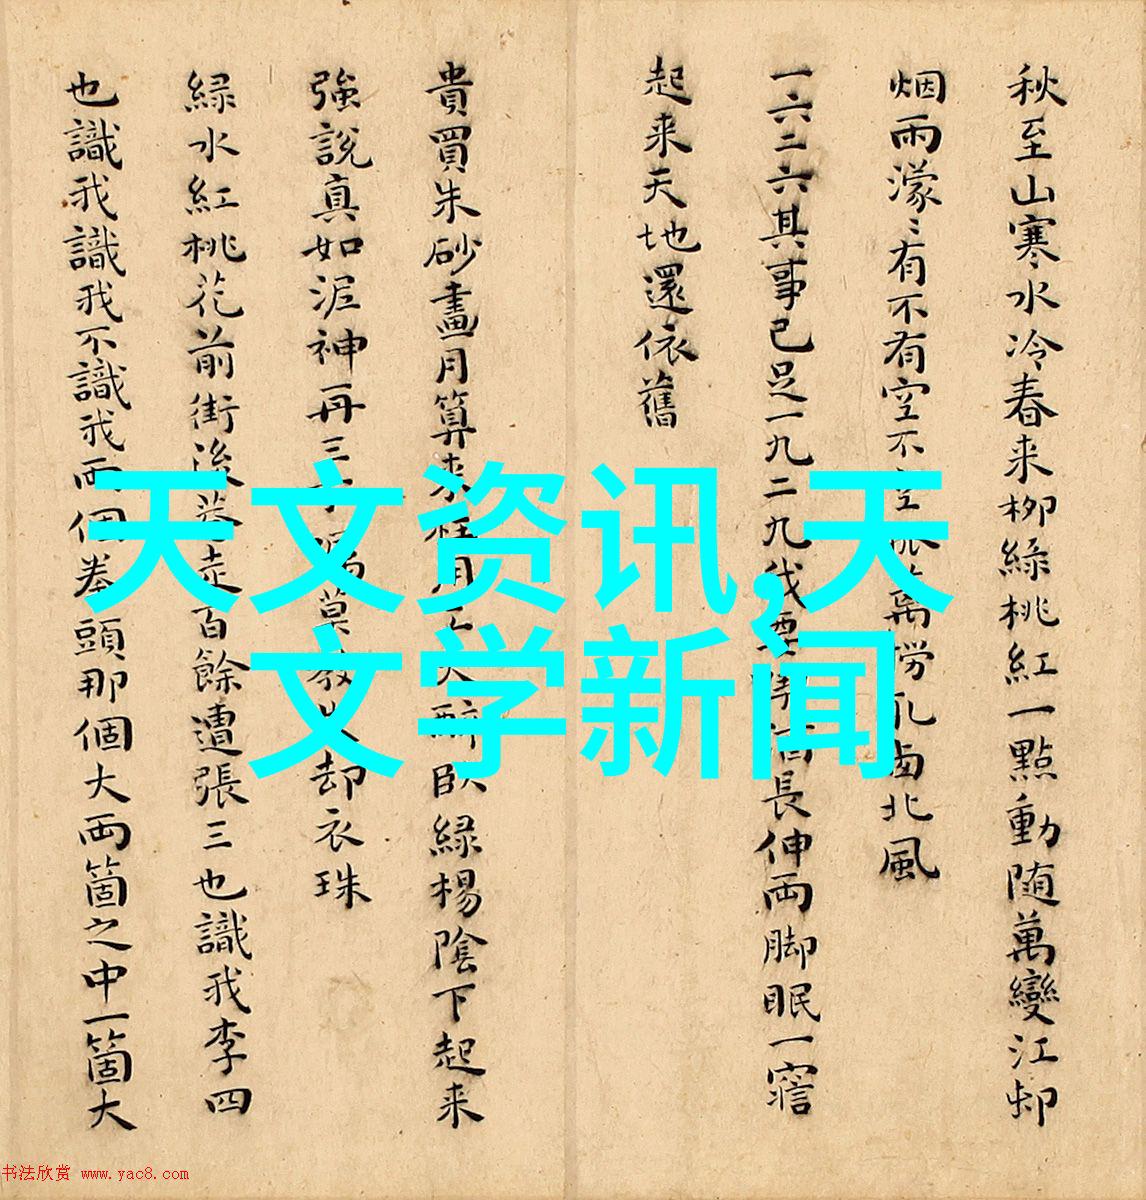 秋至山寒水冷春来柳緑桃紅一點動随萬變江邨
烟雨濛〻有不有空不空
萬撈
北風
一六二六其事已足一九二九我要
長伸両脚眠一寤
起来天地還依舊
貴買朱砂畫月算来
醉卧緑楊陰下起来
強說真如泥神再三
莫教
却衣珠
緑水紅桃花前街後巷走百餘遭張三也識我李四
也識我識我不識我両個拳頭那個大両箇之中一箇大
天文资讯,天
文学新闻
书法欣赏 www.yac8.com